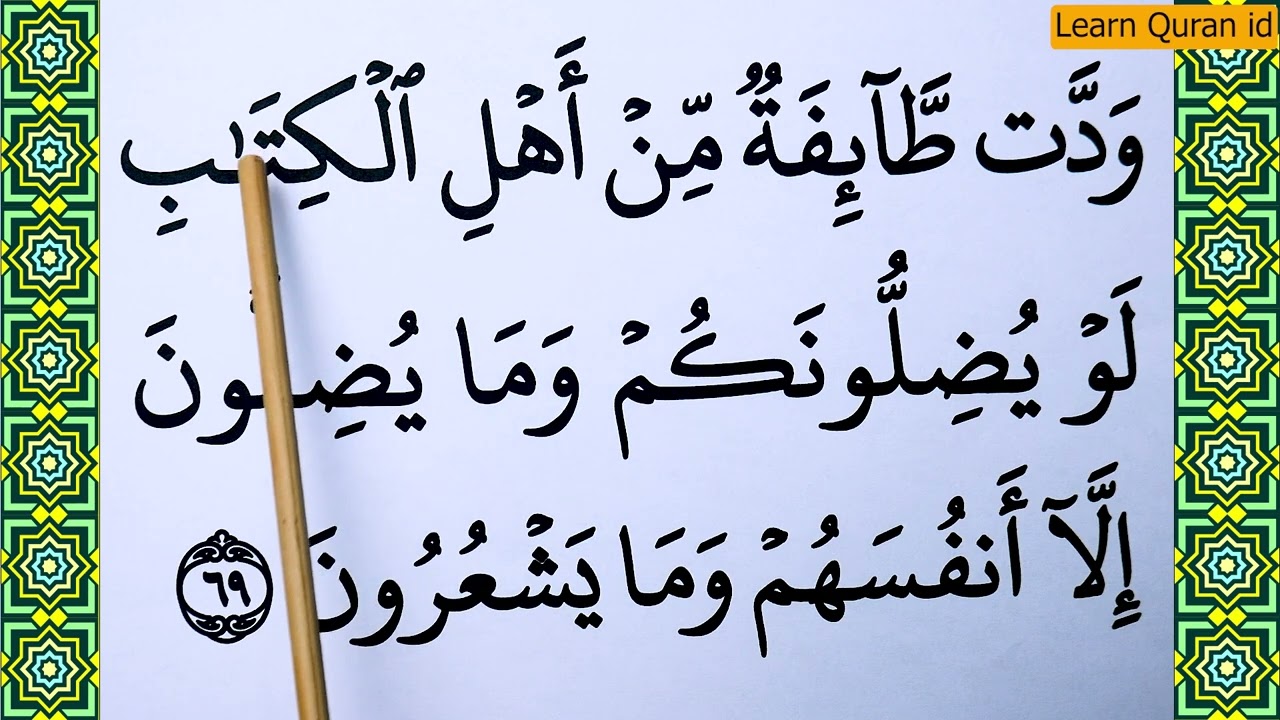 Learn Quran id
وَدَّت طَّآئِفَةٌ مِّنْ أَهْلِ ٱلْكِتَـٰبِ
لَوْ يُضِلُّونَكُمْ وَمَا يُضِلُّونَ
إِلَّآ أَنفُسَهُمْ وَمَا يَشْعُرُونَ ٦٩